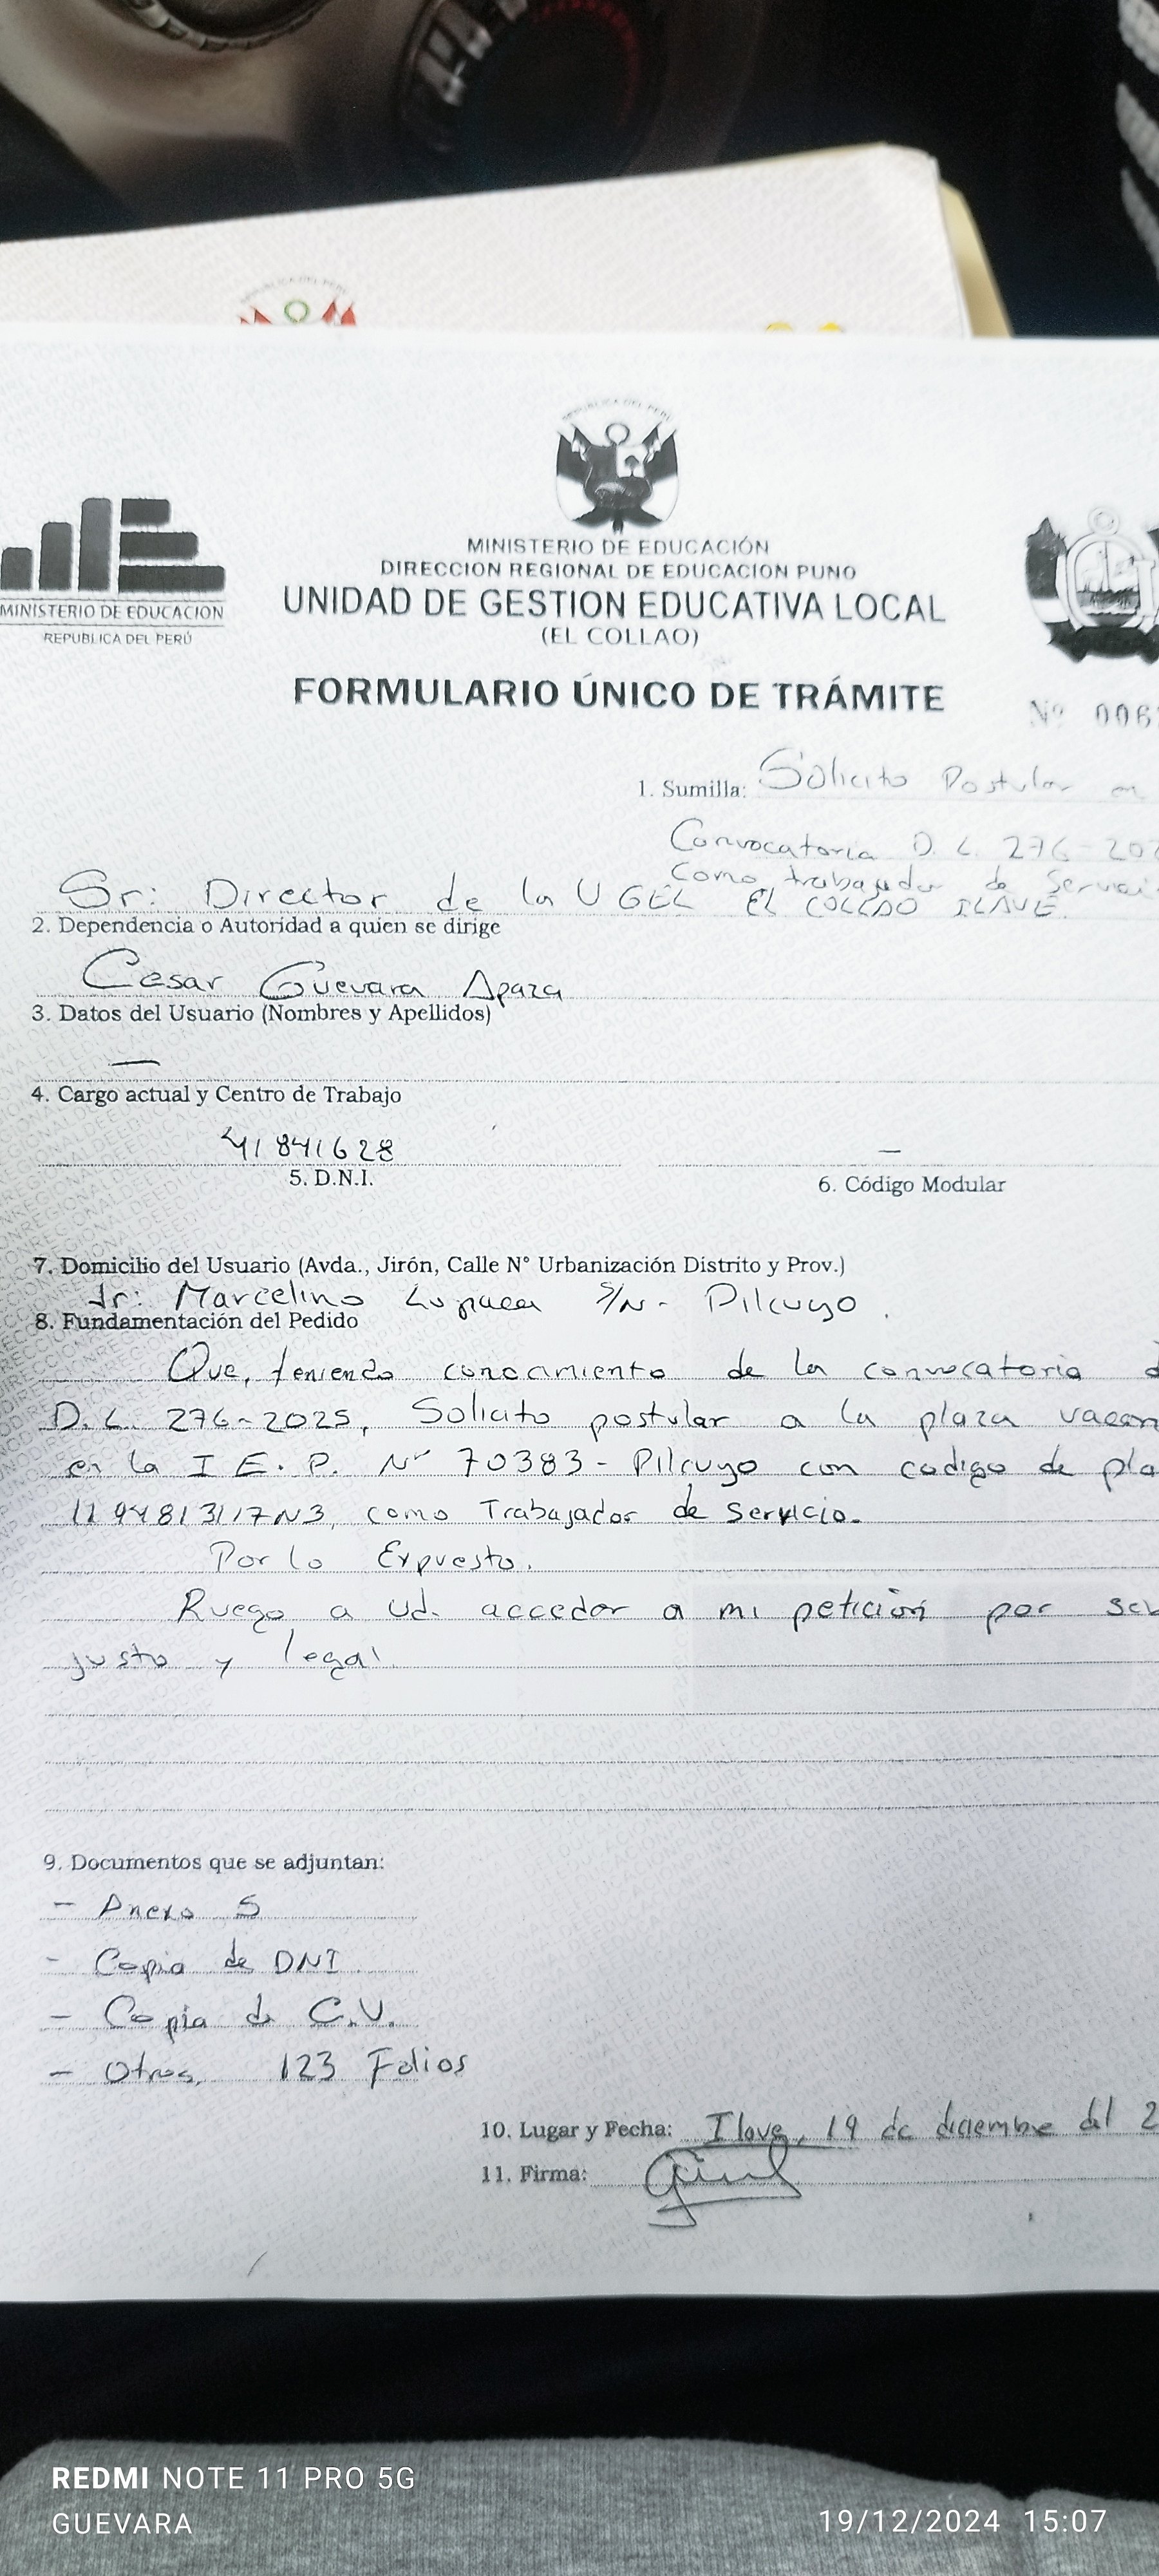 REPUBLICA DEL PERÚ
MINISTERIO DE EDUCACION
REPUBLICA DEL PERÚ
MINISTERIO DE EDUCACIÓN
DIRECCION REGIONAL DE EDUCACION PUNO
UNIDAD DE GESTION EDUCATIVA LOCAL
(EL COLLAO)
FORMULARIO ÚNICO DE TRÁMITE
Nº 006
1. Sumilla: Solicito Postular en
Convocatoria D. L. 276-202
Como trabajador de Servici
Sr: Director de la UGEL EL COLLAO ILAVE.
2. Dependencia o Autoridad a quien se dirige
Cesar Guevara Apaza
3. Datos del Usuario (Nombres y Apellidos)
—
4. Cargo actual y Centro de Trabajo
41841628 —
5. D.N.I. 6. Código Modular
7. Domicilio del Usuario (Avda., Jirón, Calle N° Urbanización Distrito y Prov.)
Jr: Marcelino Lupaca S/N - Pilcuyo.
8. Fundamentación del Pedido
Que, teniendo conocamiento de la convocatoria d
D.L. 276-2025, Solicito postular a la plaza vacan
en la I E. P. Nº 70383 - Pilcuyo con codigo de pla
como Trabajador de Servicio.
Por lo Expuesto.
Ruego a Ud. acceder a mi petición por ser
justo y legal.
9. Documentos que se adjuntan:
- Anexo 5
- Copia de DNI
- Copia de C.V.
- Otros, 123 Folios
10. Lugar y Fecha: Ilave, 19 de diciembre del 2
11. Firma:
REDMI NOTE 11 PRO 5G
GUEVARA 19/12/2024 15:07